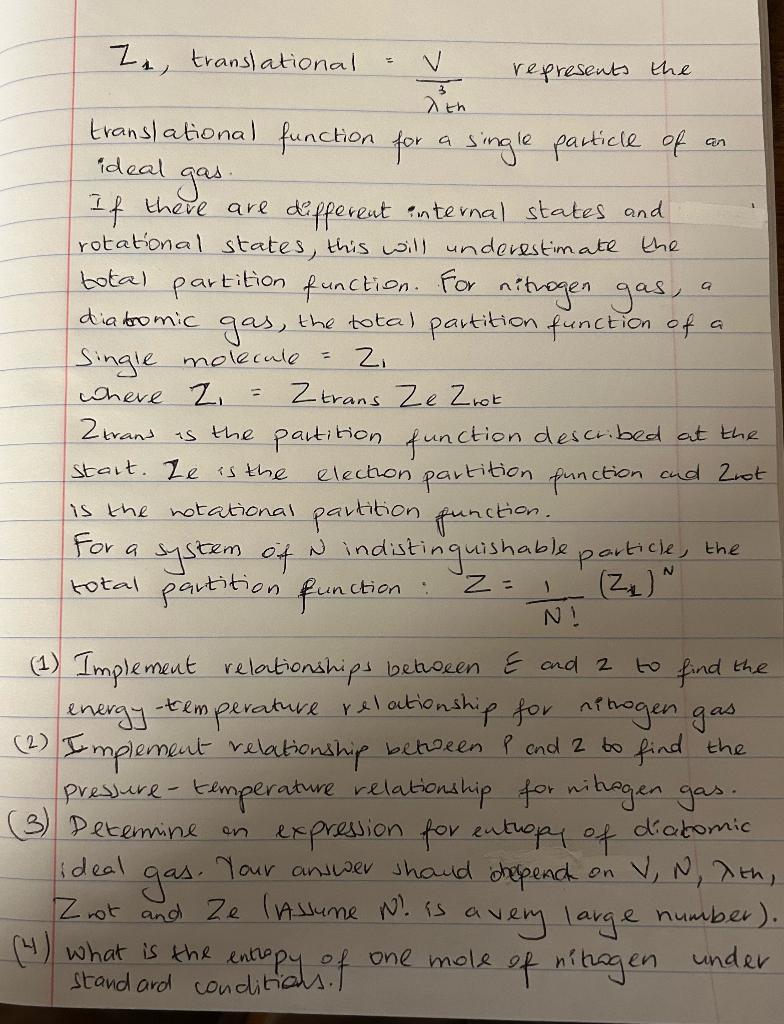 Z₁, translational = V represents the
λ³th
translational function for a single particle of an
ideal gas.
If there are different internal states and
rotational states, this will underestimate the
total partition function. For nitrogen gas, a
diatomic gas, the total partition function of a
single molecule = Z₁
where Z₁ = Ztrans Ze Zrot
Ztrans is the partition function described at the
start. Ze is the electron partition function and Zrot
is the rotational partition function.
For a system of N indistinguishable particle, the
total partition function : Z = 1/N! (Z₁)ᴺ
(1) Implement relationships between E and z to find the
energy-temperature relationship for nitrogen gas
(2) Implement relationship between P and Z to find the
pressure - temperature relationship for nitrogen gas.
(3) Determine an expression for entropy of diatomic
ideal gas. Your answer should depend on V, N, λth,
Zrot and Ze (Assume N! is a very large number).
(4) what is the entropy of one mole of nitrogen under
standard conditions.